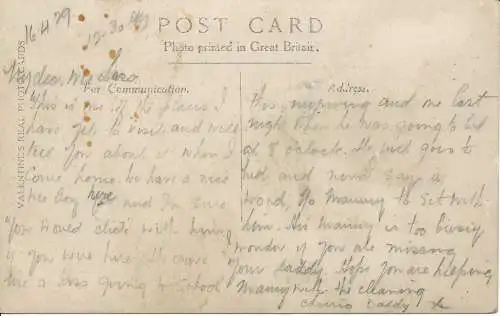 16 4 29
12-30
POST CARD
Photo printed in Great Britain.
VALENTINE'S REAL PHOTO CARDS
My dear
For Communication.
Address.
This is one of the places I
have yet to visit and will
tell you about it when I
come home. We have a nice
wee boy here and I'm sure
you would with having
if you were here. He gave
me a going to school
this morning and me last
night when he was going to bed
at 8 o'clock. He just goes to
bed and never say a
word, no Mammy to sit with
him. His mammy is too busy
wonder if you are missing
your daddy. Hope you are helping
Mammy with the cleaning
cheerio Daddy x